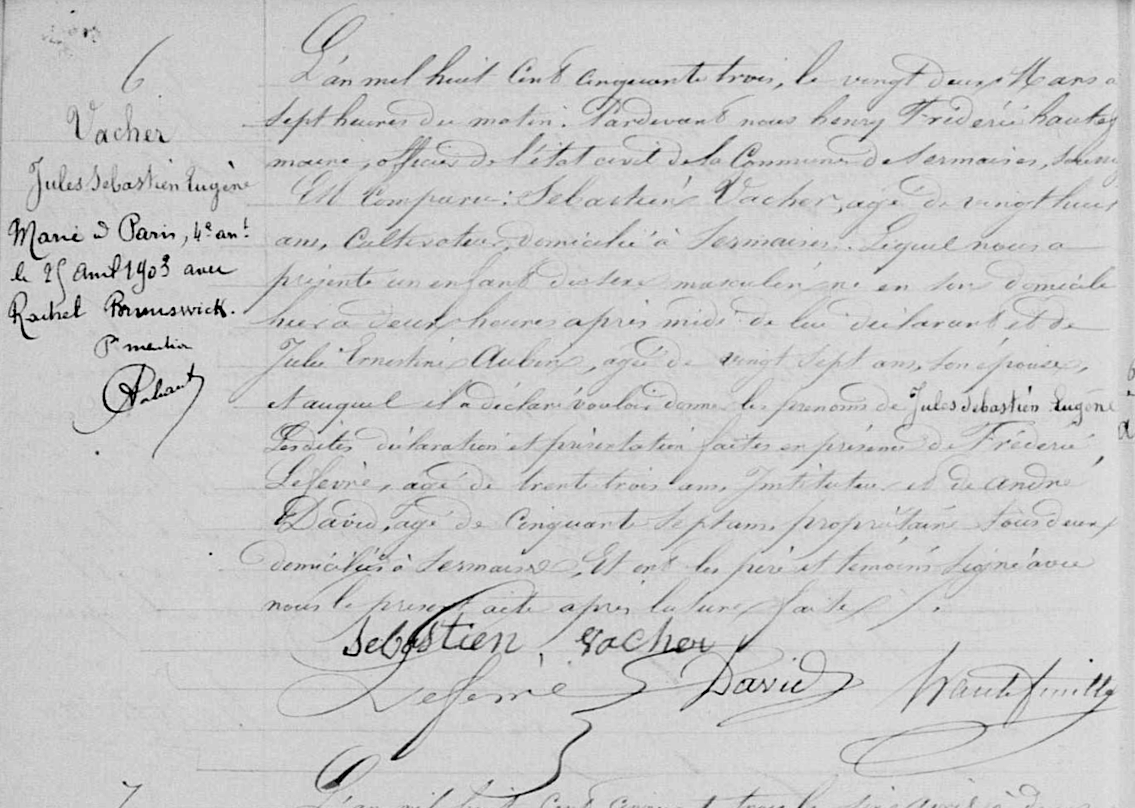 6
Vacher
Jules Sebastien Eugène
Marié à Paris, 4e arrt
le 25 Avril 1903 avec
Rachel Brunswick.
Pr mention
L'an mil huit Cent Cinquante trois, le vingt deux Mars a
Sept heures du matin. Pardevant nous henry Fréderic hautef
maire, officier de l'état civil de la Commune de Sermaises, soussig
Est Comparu : Sebastien Vacher, agé de vingt huit
ans, Cultivateur, domicilié à Sermaises. Lequel nous a
présenté un enfant du sexe masculin né en son domicile
hier a deux heures après midi de lui déclarant et de
Julie Ernestine Aubin, agée de vingt sept ans, son épouse,
et auquel il a déclaré vouloir donner les prenoms de Jules Sebastien Eugène
Lesdites déclaration et présentation faites en présence de Fréderic
Lefevre, agé de trente trois ans, Instituteur et de André
David, agé de Cinquante Sept ans, propriétaire tous deux
domiciliés à Sermaises, Et ont les père et temoins Signé avec
nous le présent acte après lecture faite.
Sebastien Vacher
Lefevre David Hautefeuille
7
L'an mil huit Cent Cinquante trois le